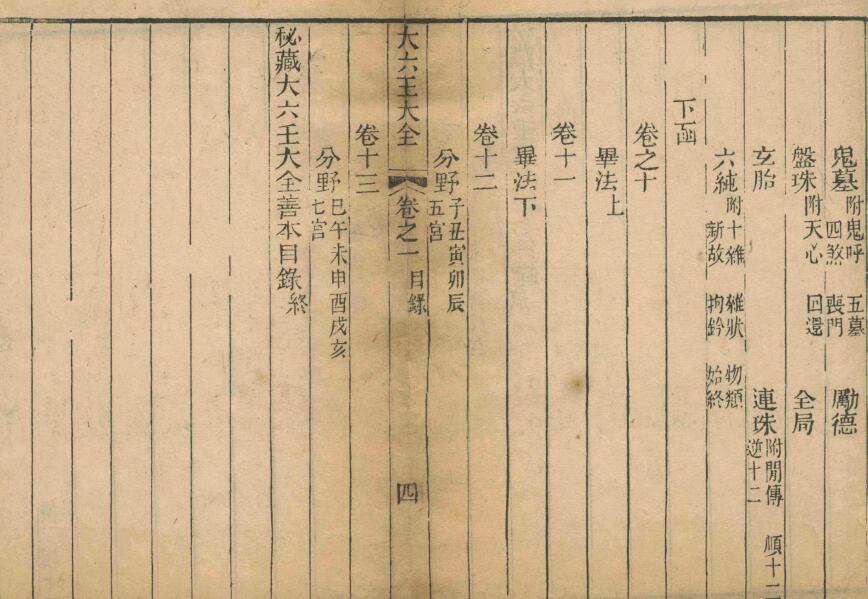 鬼墓附鬼呼 五墓 四煞 喪門 勵德
盤珠附天心 回還 全局
玄胎 連珠附閒傳 順十二 逆十二
六純附十雜 雜狀 物類 新故 拘鈐 始終
下函
卷之十
畢法上
卷十一
畢法下
卷十二
分野子丑寅卯辰五宮
大六壬大全 卷之一 目錄 四
卷十三
分野巳午未申酉戌亥七宮
秘藏大六壬大全善本目錄終